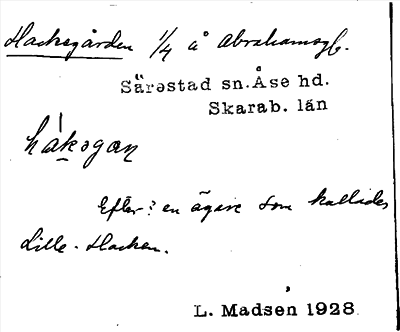 Hackegården 1/4 å Abrahamsg.
Särestad sn. Åse hd.
Skarab. län
hákəgan
Efter: en ägare som kallades
Lille-Hacken.
L. Madsen 1928